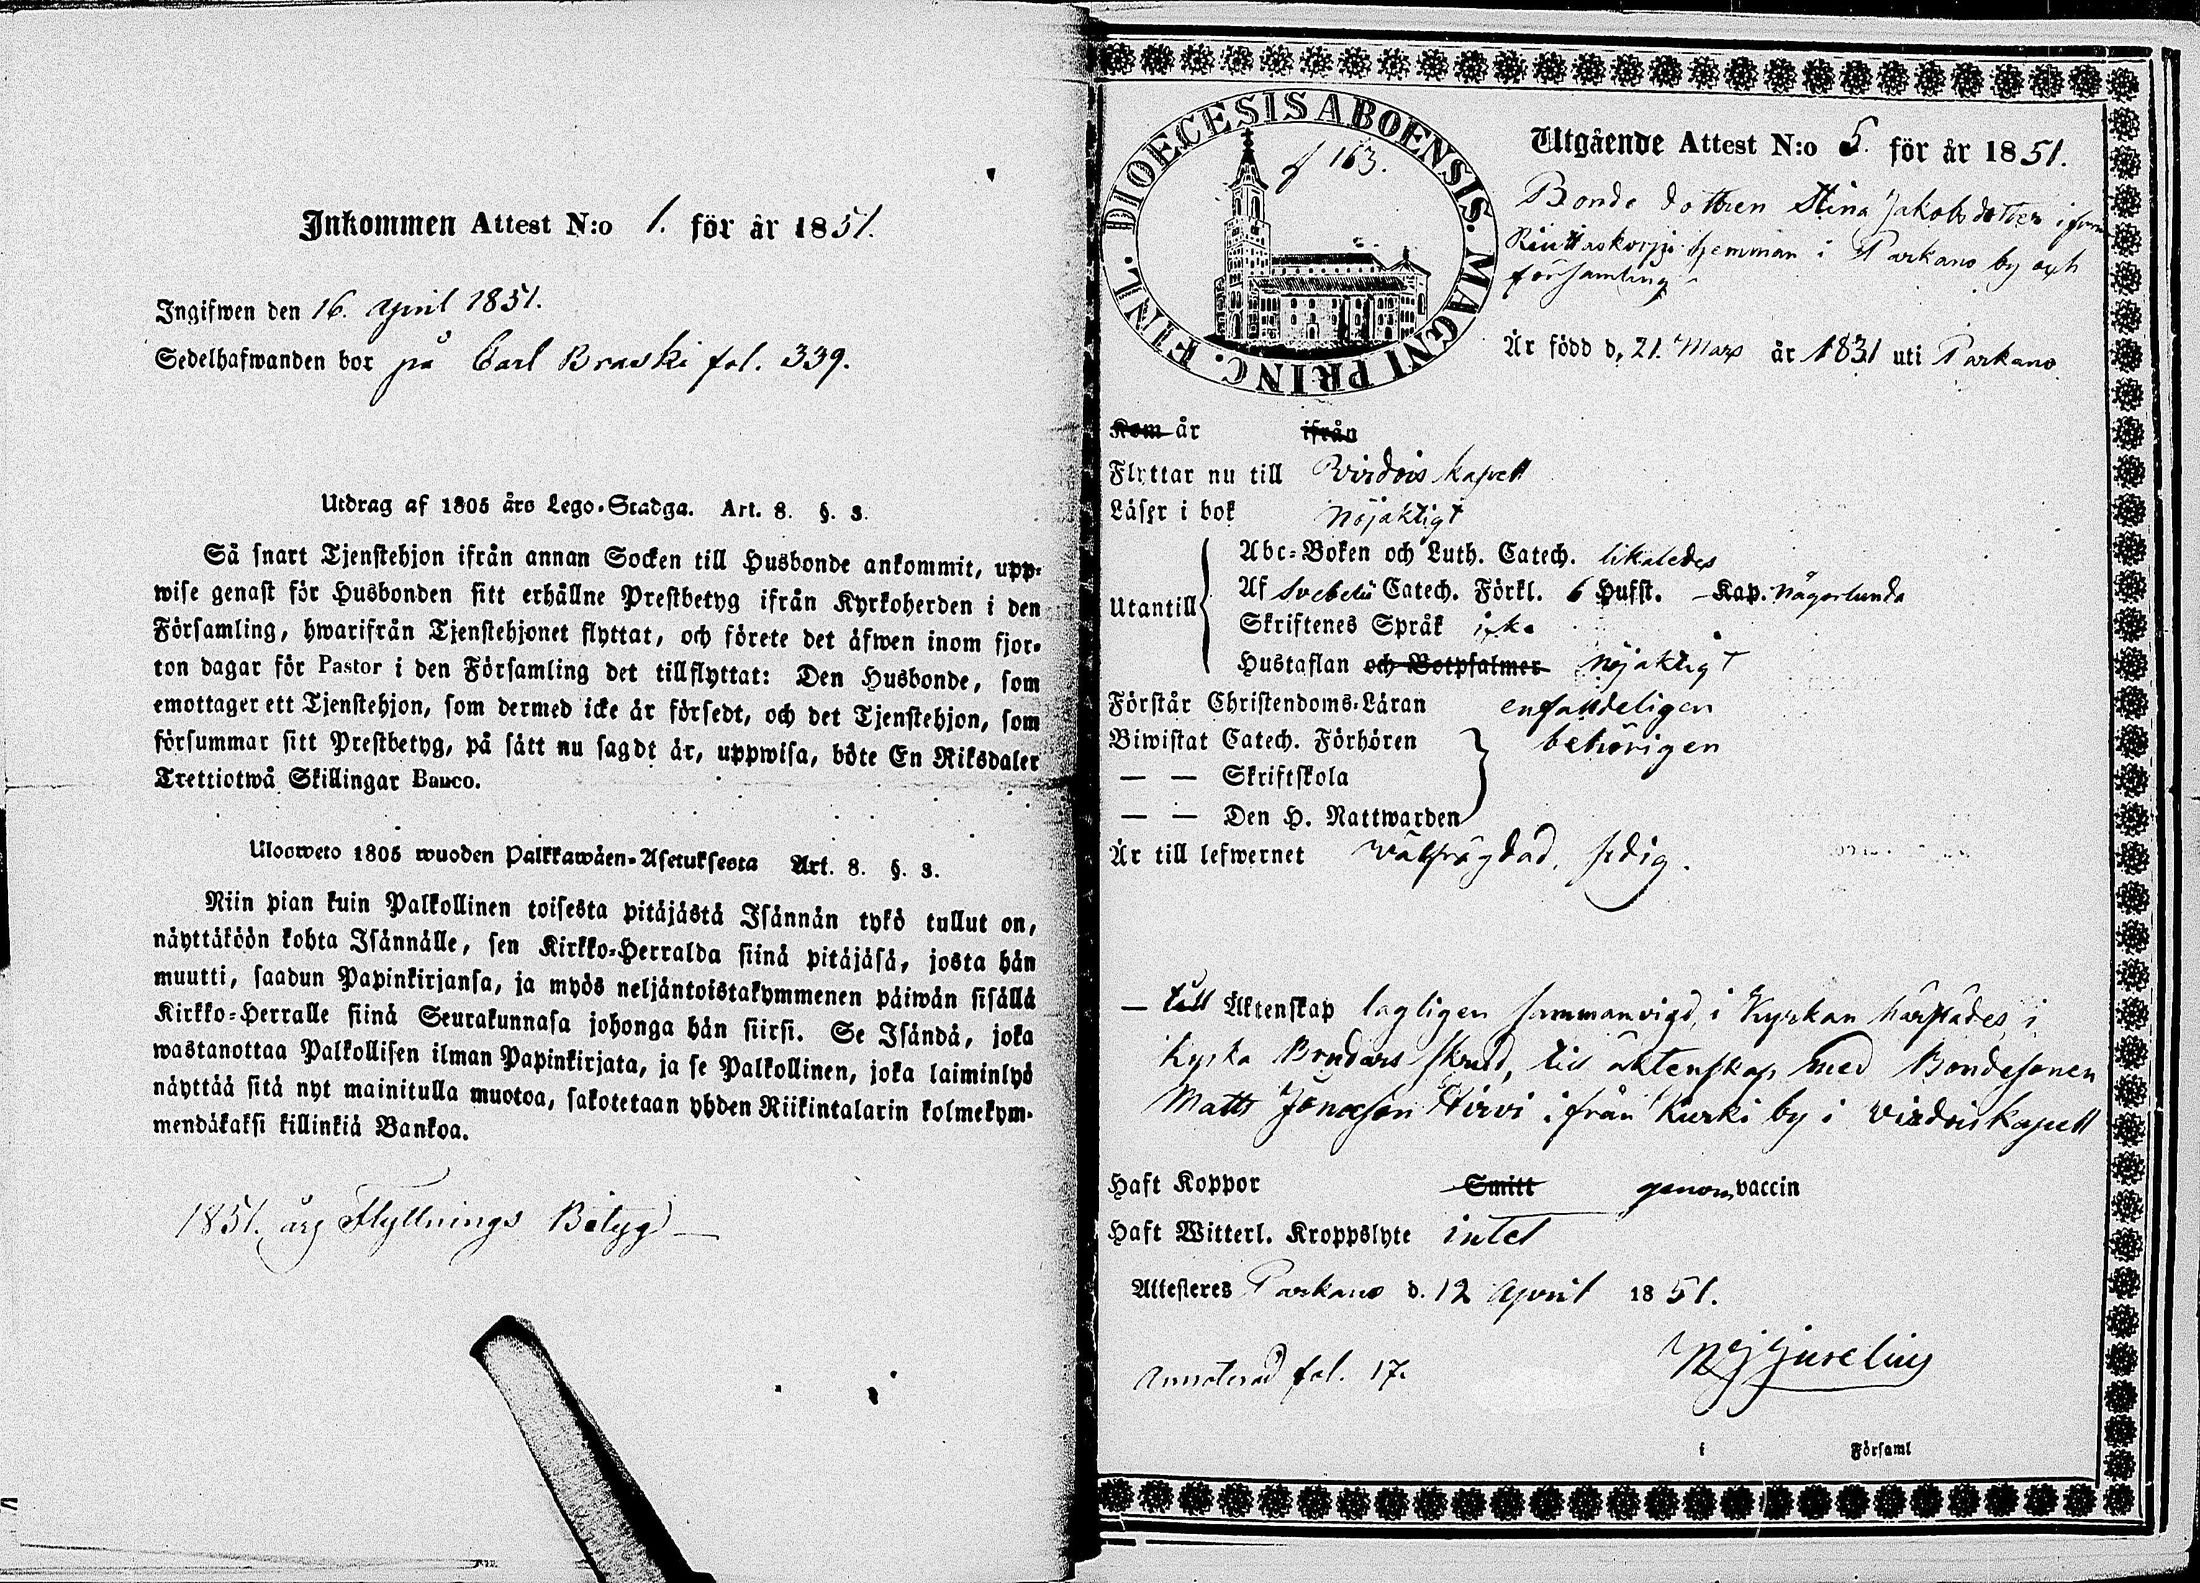 Inkommen Attest N:o 1. för år 1851.
Ingifwen den 16. April 1851.
Sedelhafwanden bor på Carl Braski fol. 339.
Utdrag af 1805 års Lego-Stadga. Art. 8. §. 3.
Så snart Tjenstehjon ifrån annan Socken till Husbonde ankommit, upp-
wise genast för Husbonden sitt erhållne Prestbetyg ifrån Kyrkoherden i den
Församling, hwarifrån Tjenstehjonet flyttat, och förete det äfwen inom fjor-
ton dagar för Pastor i den Församling det tillflyttat: Den Husbonde, som
emottager ett Tjenstehjon, som dermed icke är försedt, och det Tjenstehjon, som
försummar sitt Prestbetyg, på sätt nu sagdt är, uppwisa, böte En Riksdaler
Trettiotwå Skillingar Banco.
Ulosweto 1805 wuoden Palkkawäen-Asetuksesta Art. 8. §. 3.
Niin pian kuin Palkollinen toisesta pitäjästä Isännän tykö tullut on,
näyttäköön kohta Isännälle, sen Kirkko-Herralda siinä pitäjäsä, josta hän
muutti, saadun Papinkirjansa, ja myös neljäntoistakymmenen päiwän sisällä
Kirkko-Herralle siinä Seurakunnasa johonga hän siirsi. Se Isändä, joka
wastanottaa Palkollisen ilman Papinkirjata, ja se Palkollinen, joka laiminlyö
näyttää sitä nyt mainitulla muotoa, sakotetaan yhden Riikintalarin kolmekym-
mendäkaksi killinkiä Bankoa.
1851. års Flyttnings Betyg
DIOECESIS ABOENSIS. MAGNI PRINC. FINL.
f 163.
Utgående Attest N:o 5. för år 1851.
Bonde dottren Stina Jakobsdotter ifrån
hemman i Parkano by och
församling
Är född d. 21. Mars år 1831 uti Parkano
Kom år ifrån
Flyttar nu till Virdois kapell
Läser i bok nöjaktigt
Utantill
Abc-Boken och Luth. Catech. likaledes
Af Svebelii Catech. Förkl. 6 Hufst. Kap. någorlunda
Skriftenes Språk icke
Hustaflan och Botpsalmer nöjaktigt
Förstår Christendoms-Läran enfaldeligen
Biwistat Catech. Förhören behörigen
— — Skriftskola
— — Den H. Nattwarden
Är till lefwernet välfrägdad, sedig.
— till Äktenskap lagligen sammanvigd, i Kyrkan härstädes, i
Kyrko Brudars skrud, till äktenskap med Bondesonen
Matts Jonasson Hirvi ifrån Kurki by i Virdois kapell
Haft Koppor Smitt genom vaccin
Haft Witterl. Kroppslyte intet
Attesteres Parkano d. 12 April 1851.
Annoterad fol. 17.
i Församl